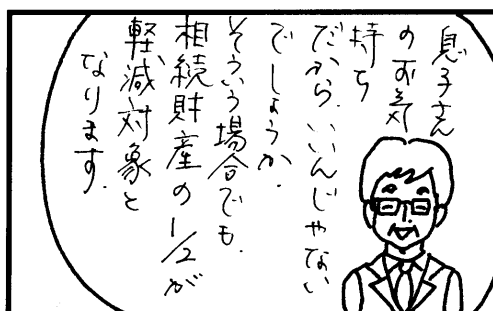 息子さん
のお気
持ち
だから、いいんじゃない
でしょうか.
そういう場合でも、
相続財産の1/2が
軽減対象と
なります.